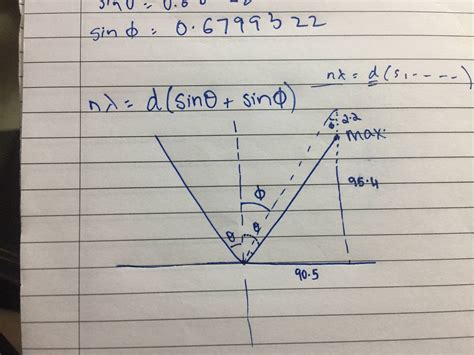 sinθ = 0.
sin ϕ = 0.6799322
nλ = d(s
nλ = d(sinθ + sinϕ)
2.2
max.
95.4
ϕ
θ
θ
90.5